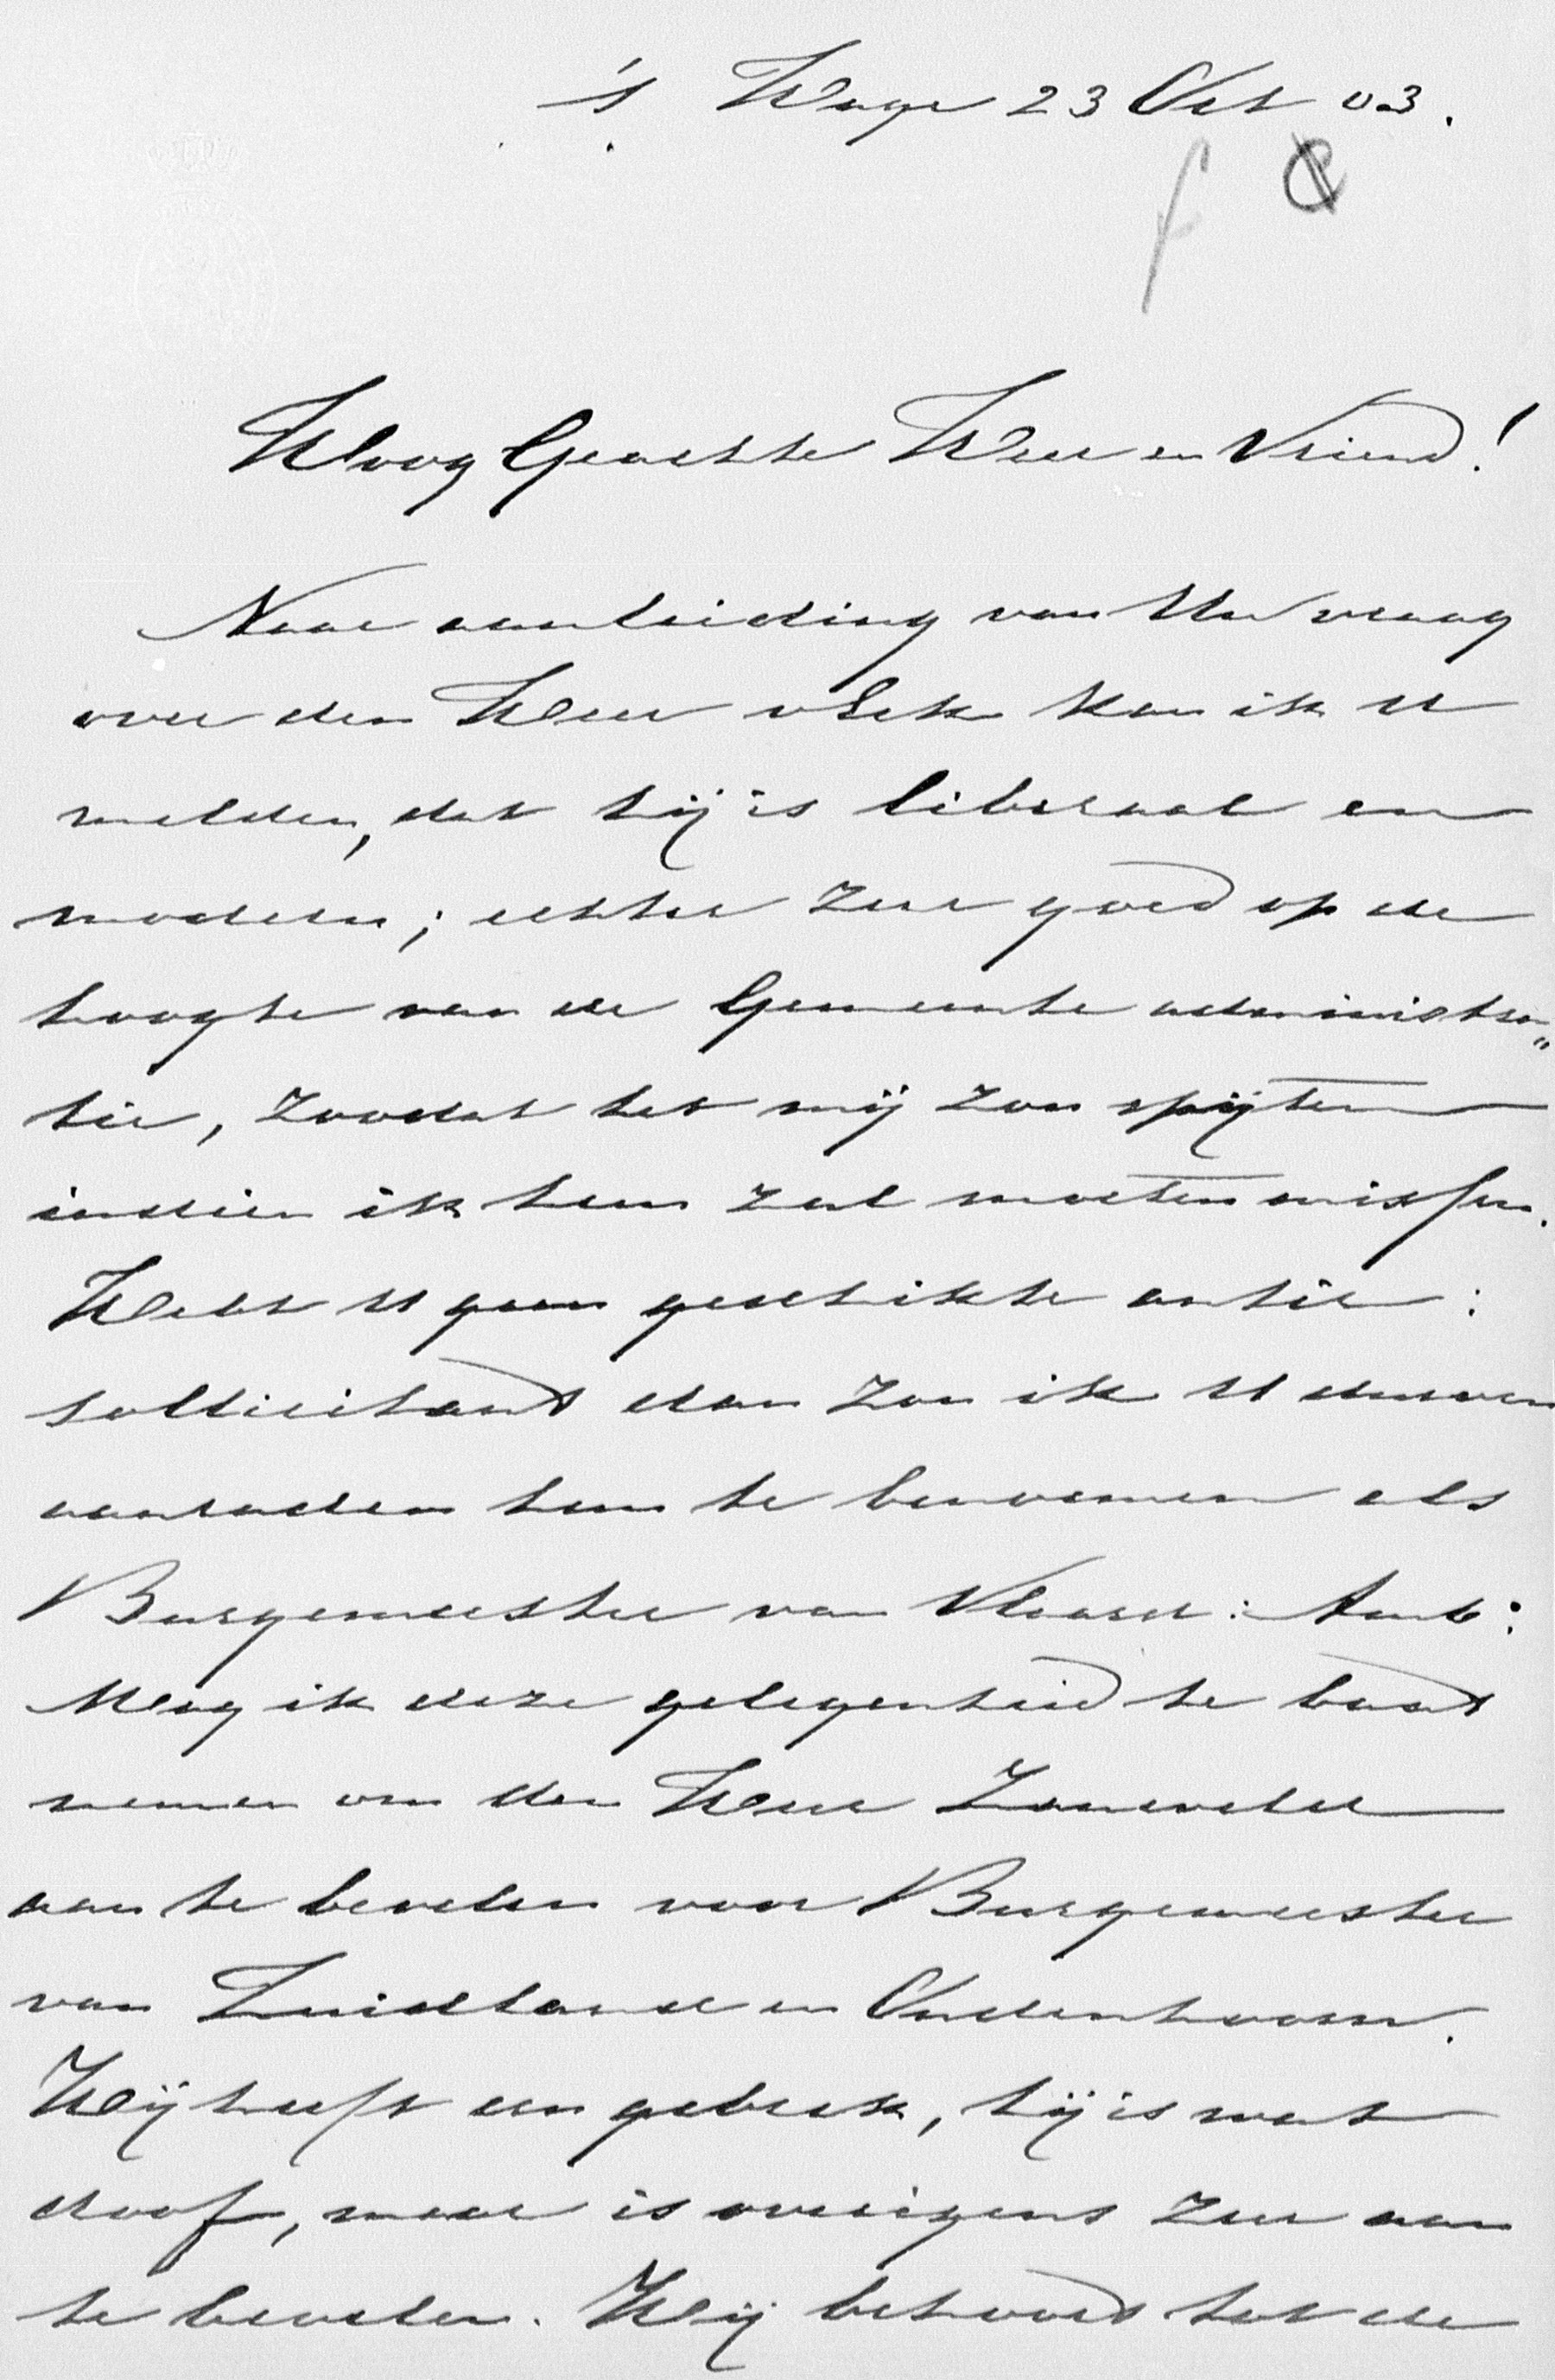 's Hage 23 Oct 03.
Hoog Geachte Heer en Vriend!
Naar aanleiding van Uw vraag
over den Heer v Eck kan ik U
melden, dat hij is liberaal en
modern; echter zeer goed op de
hoogte van de Gemeente administra„
tie, zoodat het mij zou spijten
indien ik hem zal moeten missen.
Hebt U geen geschikte antir:
sollicitant dan zou ik U durven
aanraden hem te benoemen als
Burgemeester van Vlaard: Amb:
Mag ik deze gelegenheid te baat
nemen om den Heer
aan te bevelen voor Burgemeester
van Zuidland en Oudenhoorn.
Hij heeft een gebrek, hij is wat
doof, maar is overigens zeer aan
te bevelen. Hij behoord tot de